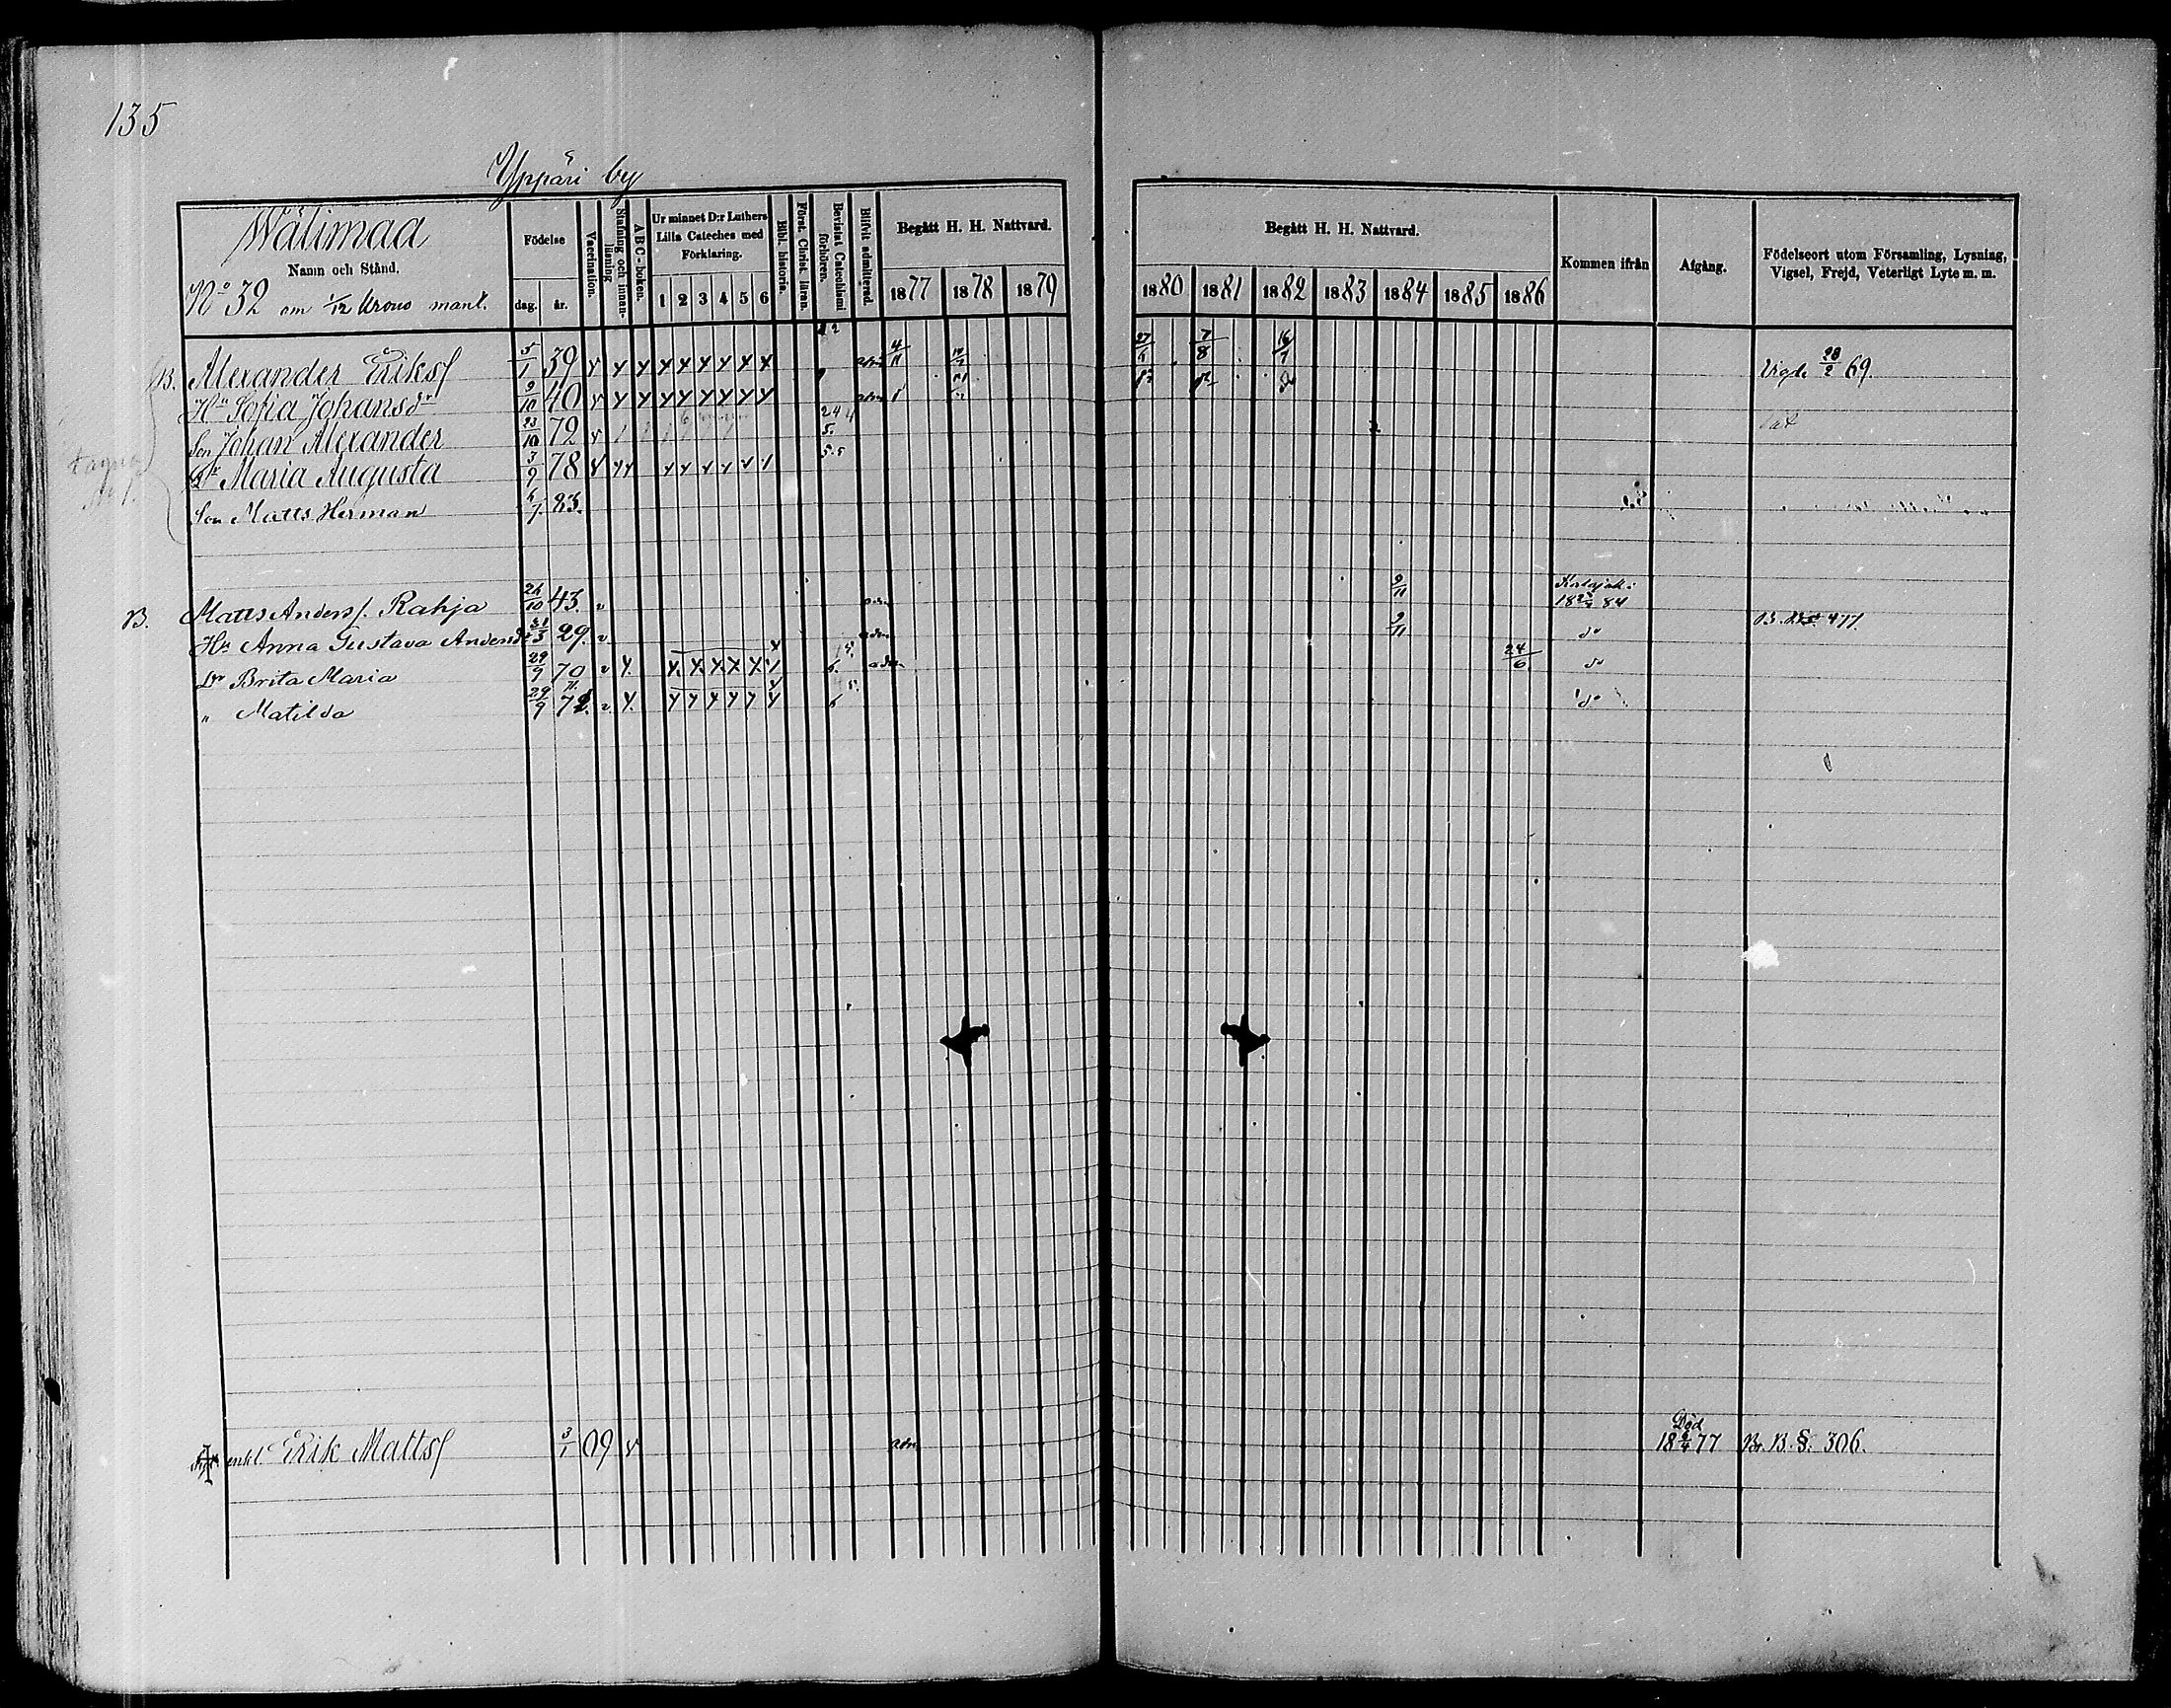 135
Yppäri by
Wälimaa
Namn och Stånd.
No 32 om 1/12 Krono mant.
Födelse
dag. år.
Vaccination.
Stafning och innan-läsning
ABC-boken.
Ur minnet D:r Luthers Lilla Cateches med Förklaring.
1 2 3 4 5 6
Bibl. historia.
Först. Christ. läran.
Bevistat Catechismi förhören.
Blifvit admitterad.
Begått H. H. Nattvard.
1877 1878 1879
Begått H. H. Nattvard.
1880 1881 1882 1883 1884 1885 1886
Kommen ifrån
Afgång.
Födelseort utom Församling, Lysning, Vigsel, Frejd, Veterligt Lyte m. m.
B. Alexander Eriksf 5/1 39 v adm 4/11 7/8 16/7 Vigde 28/2 69.
Hu Sofia Johansdr 9/10 40 v adm
Son Johan Alexander 23/10 72 v
Dr Maria Augusta 3/9 78
Son Matts Herman 83.
B. Matts Andersf. Rahja 24/10 43. v adm 9/11 Kalajoki
Hu Anna Gustava Andersdr 31/3 29. v adm 9/11 do
Dr Brita Maria 29/9 70 v adm 24/6 do
" Matilda 29/9 v do
enkl. Erik Mattsf 3/1 09 v adm Död 77 Br. B. §. 306.